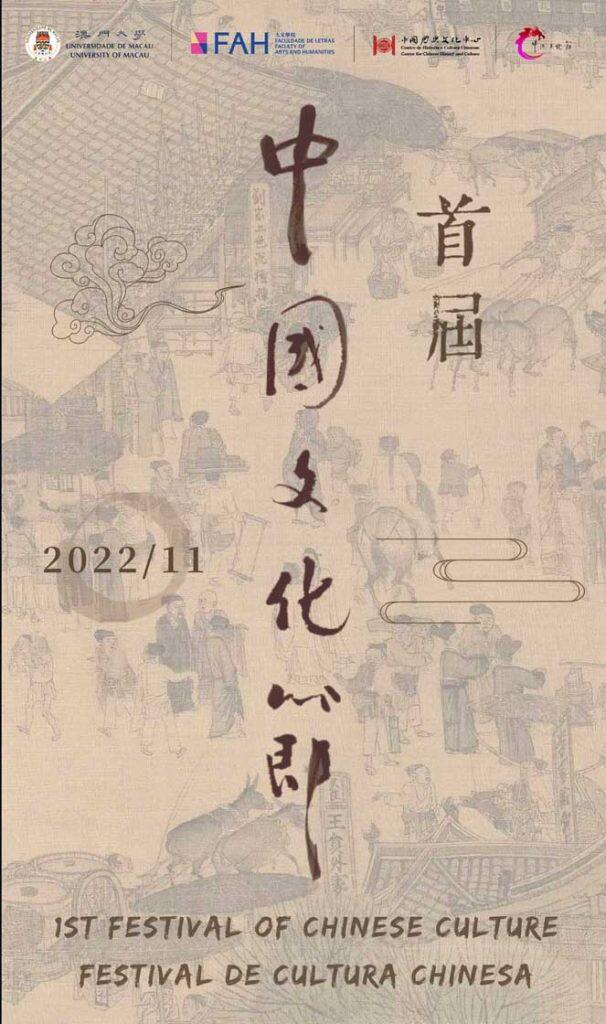 澳門大學
UNIVERSIDADE DE MACAU
UNIVERSITY OF MACAU
FAH
人文學院
FACULDADE DE LETRAS
FACULTY OF
ARTS AND HUMANITIES
中國歷史文化中心
Centro de História e Cultura Chinesa
Centre for Chinese History and Culture
首届
中國文化節
劉家上色沉檀揀
2022/11
王員外家
1ST FESTIVAL OF CHINESE CULTURE
FESTIVAL DE CULTURA CHINESA